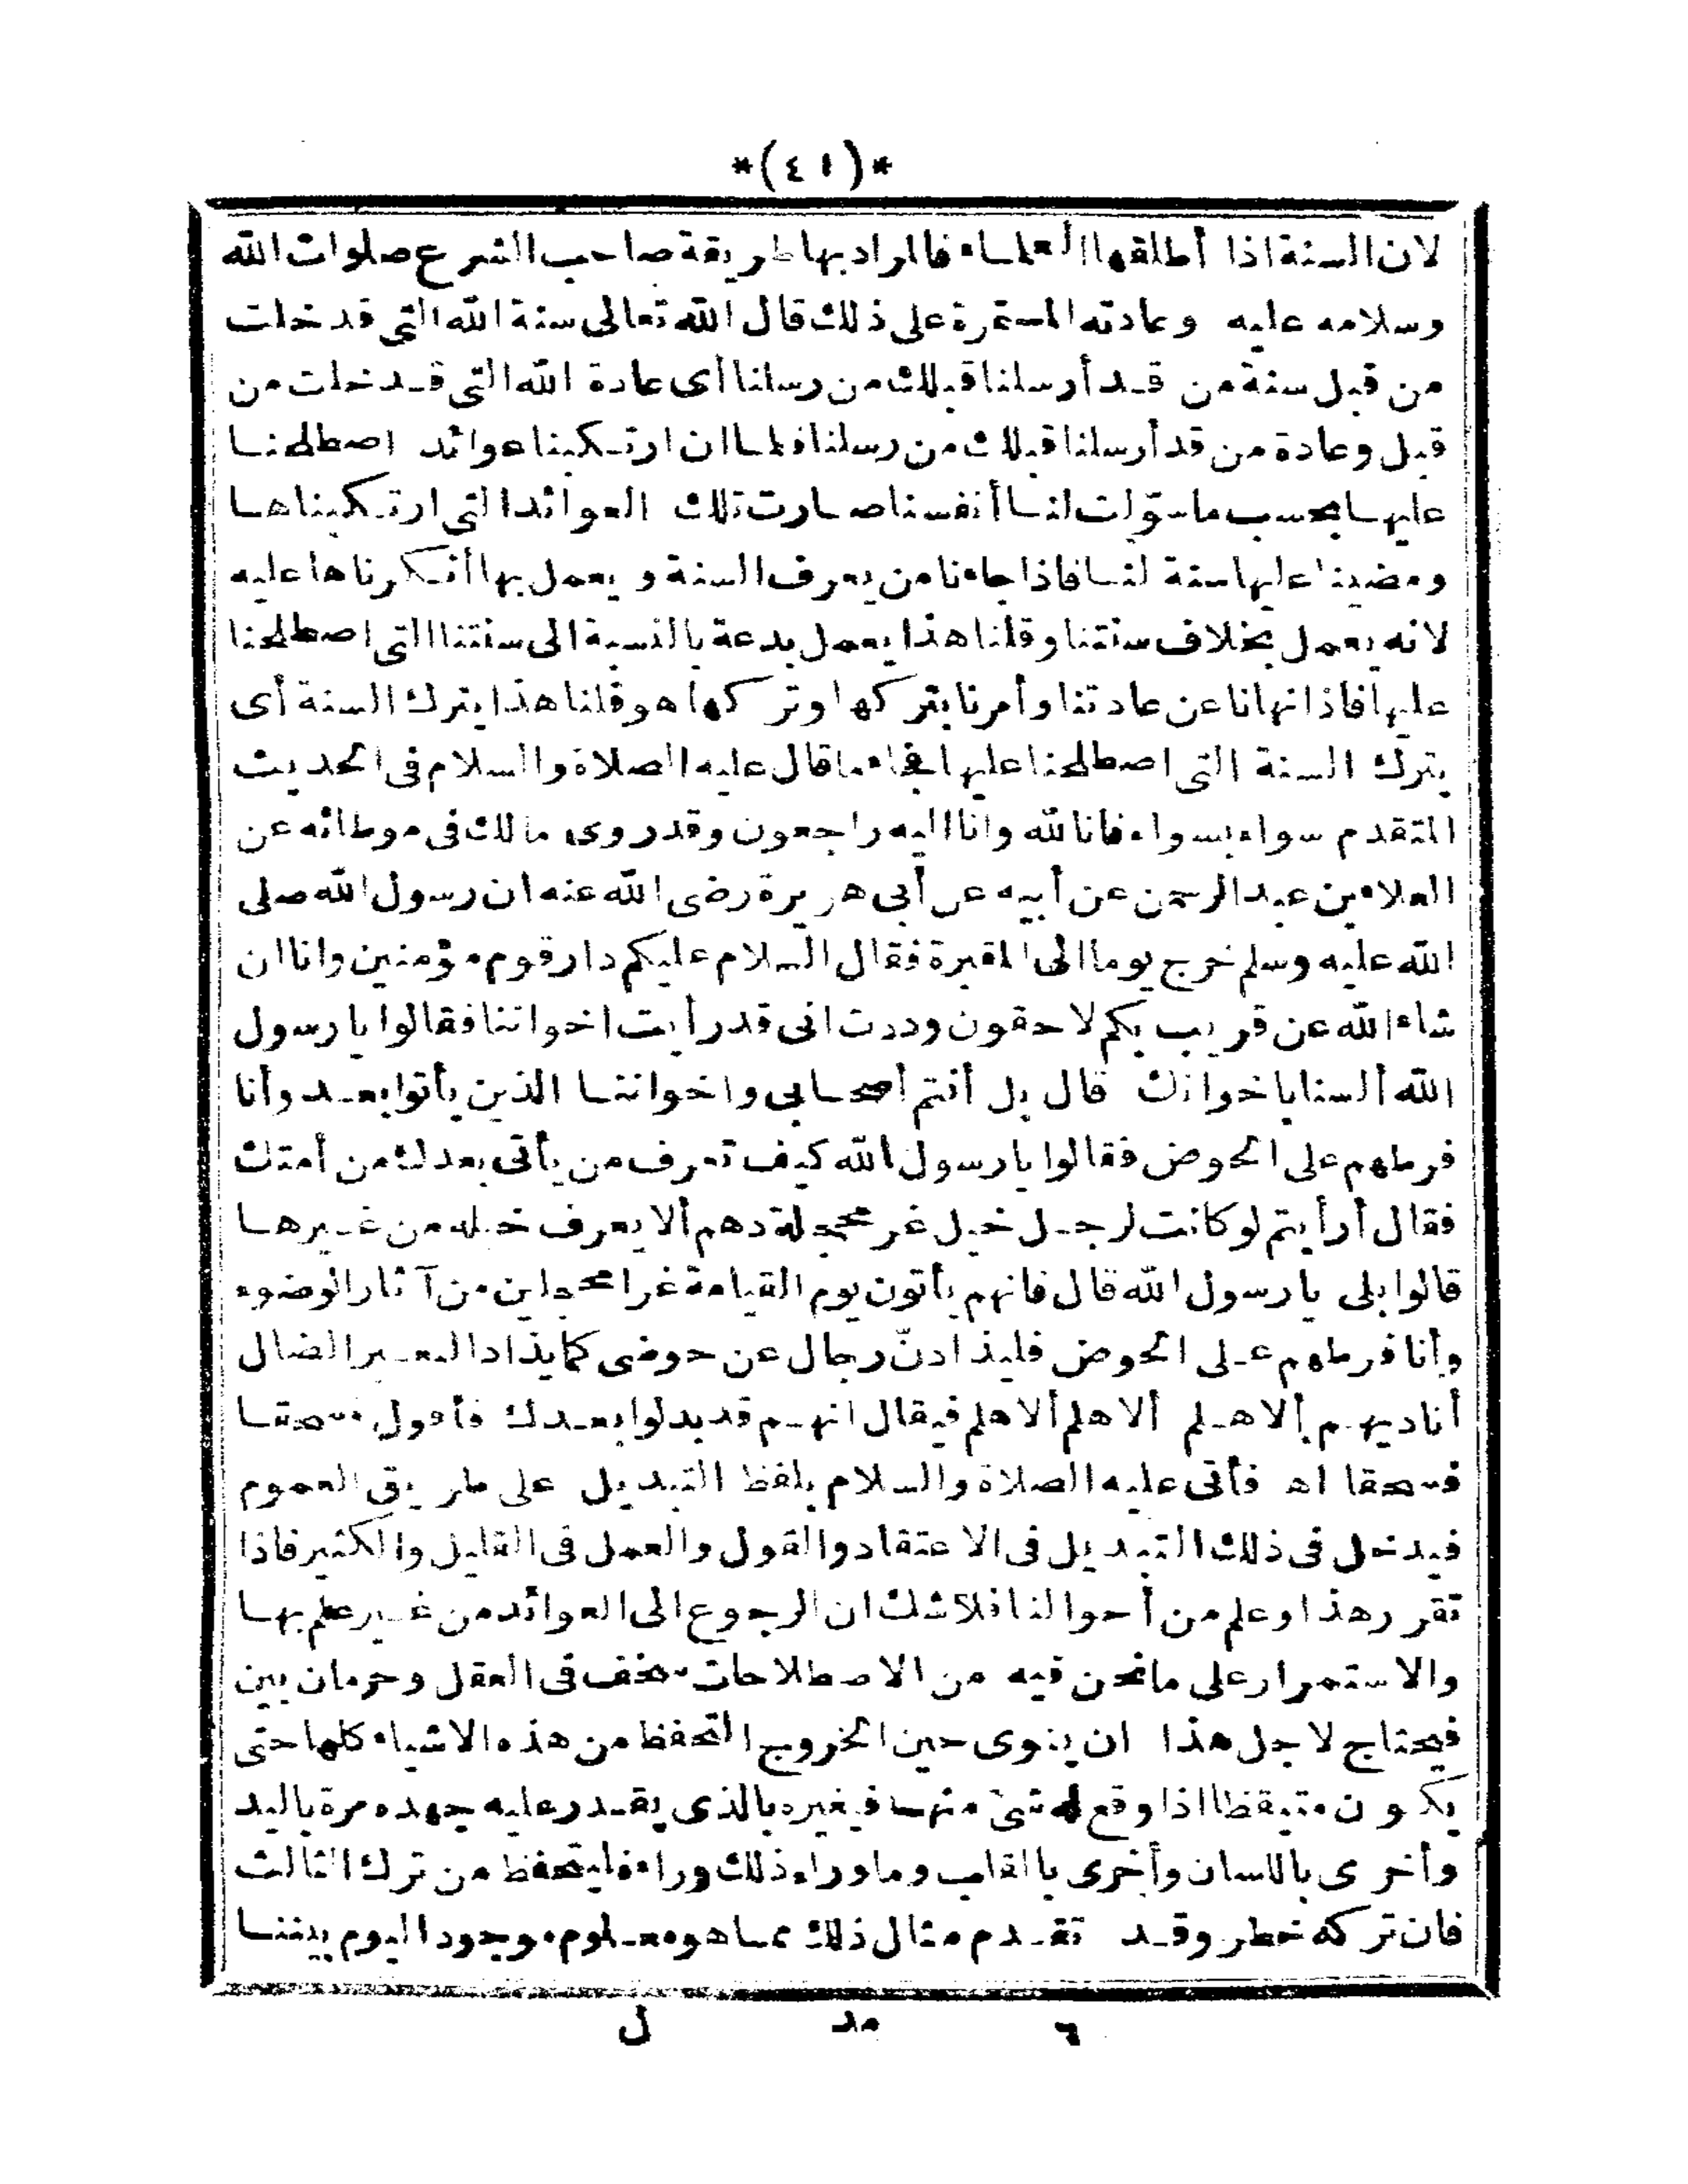 *(٤١)*
لان السنة اذا أطلقها العلماء فالمراد بها طريقة صاحب الشرع صلوات الله
وسلامه عليه وعادته المستمرة على ذلك قال الله تعالى سنة الله التى قد خلت
من قبل سنة من قد أرسلنا قبلك من رسلنا أى عادة الله التى قد خلت من
قبل وعادة من قد أرسلنا قبلك من رسلنا فلما ان ارتكبنا عوائد اصطلحنا
عليها بحسب ما سوّلت لنا أنفسنا صارت تلك العوائد التى ارتكبناها
ومضينا عليها سنة لنا فاذا جاءنا من يعرف السنة ويعمل بها أنكرناها عليه
لانه يعمل بخلاف سنتنا وقلنا هذا يعمل بدعة بالنسبة الى سنتنا التى اصطلحنا
عليها فاذا نهانا عن عادتنا وأمرنا بتركها وتركها هو قلنا هذا يترك السنة أى
يترك السنة التى اصطلحنا عليها فجاء ما قال عليه الصلاة والسلام فى الحديث
المتقدم سواء بسواء فانا لله وانا اليه راجعون وقد روى مالك فى موطائه عن
العلاء بن عبد الرحمن عن أبيه عن أبى هريرة رضى الله عنه ان رسول الله صلى
الله عليه وسلم خرج يوما الى المقبرة فقال السلام عليكم دار قوم مؤمنين وانا ان
شاء الله عن قريب بكم لاحقون وددت انى قد رأيت اخواننا فقالوا يا رسول
الله ألسنا باخوانك قال بل أنتم أصحابى واخواننا الذين يأتوا بعد وأنا
فرطهم على الحوض فقالوا يا رسول الله كيف تعرف من يأتى بعدك من أمتك
فقال أرأيتم لو كانت لرجل خيل غر محجلة دهم ألا يعرف خيله من غيرها
قالوا بلى يا رسول الله قال فانهم يأتون يوم القيامة غرا محجلين من آثار الوضوء
وأنا فرطهم على الحوض فليذادنّ رجال عن حوضى كما يذاد البعير الضال
أناديهم ألا هلم ألا هلم ألا هلم فيقال انهم قد بدلوا بعدك فأقول فسحقا
فسحقا اه فأتى عليه الصلاة والسلام بلفظ التبديل على طريق العموم
فيدخل فى ذلك التبديل فى الاعتقاد والقول والعمل فى القليل والكثير فاذا
تقرر هذا وعلم من أحوالنا فلا شك ان الرجوع الى العوائد من غير علم بها
والاستمرار على ما نحن فيه من الاصطلاحات سخف فى العقل وحرمان بين
فيحتاج لاجل هذا ان ينوى حين الخروج التحفظ من هذه الاشياء كلها حتى
يكون متيقظا اذا وقع له شئ منها فيغيره بالذى يقدر عليه جهده مرة باليد
وأخرى باللسان وأخرى بالقلب وما وراء ذلك وراء فليتحفظ من ترك الثالث
فان تركه خطر وقد تقدم مثال ذلك مما هو معلوم موجود اليوم بيننا
٦ مد ل